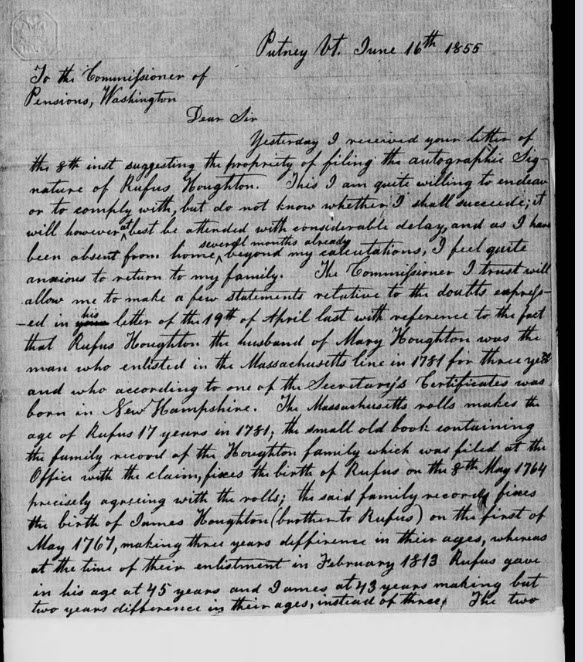 Putney Vt. June 16th 1855
To the Commissioner of
Pensions, Washington
Dear Sir
Yesterday I received your letter of
the 8th inst suggesting the propriety of filing the autographic Sig-
nature of Rufus Houghton. This I am quite willing to endeav
or to comply with, but do not know whether I shall succeede; it
will however at best be attended with considerable delay, and as I have
been absent from home several months already beyond my calculations, I feel quite
anxious to return to my family. The Commissioner I trust will
allow me to make a few statements relative to the doubts express-
-ed in his letter of the 19th of April last with reference to the fact
that Rufus Houghton the husband of Mary Houghton was the
man who enlisted in the Massachusetts line in 1781 for three years
and who according to one of the Secretary's Certificates was
born in New Hampshire. The Massachusetts rolls makes the
age of Rufus 17 years in 1781; the small old book containing
the family record of the Houghton family which was filed at the
Office with the claim, fixes the birth of Rufus on the 8th May 1764
precisely agreeing with the rolls; the said family record fixes
the birth of James Houghton (brother to Rufus) on the first of
May 1767, making three years difference in their ages, whereas
at the time of their enlistment in February 1813 Rufus gave
in his age at 45 years and James at 43 years making but
two years difference in their ages, instead of three. The two